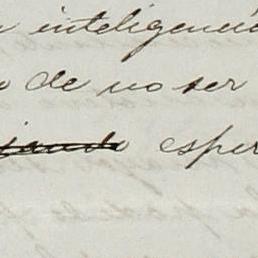 inteligencia
de no ser
esper